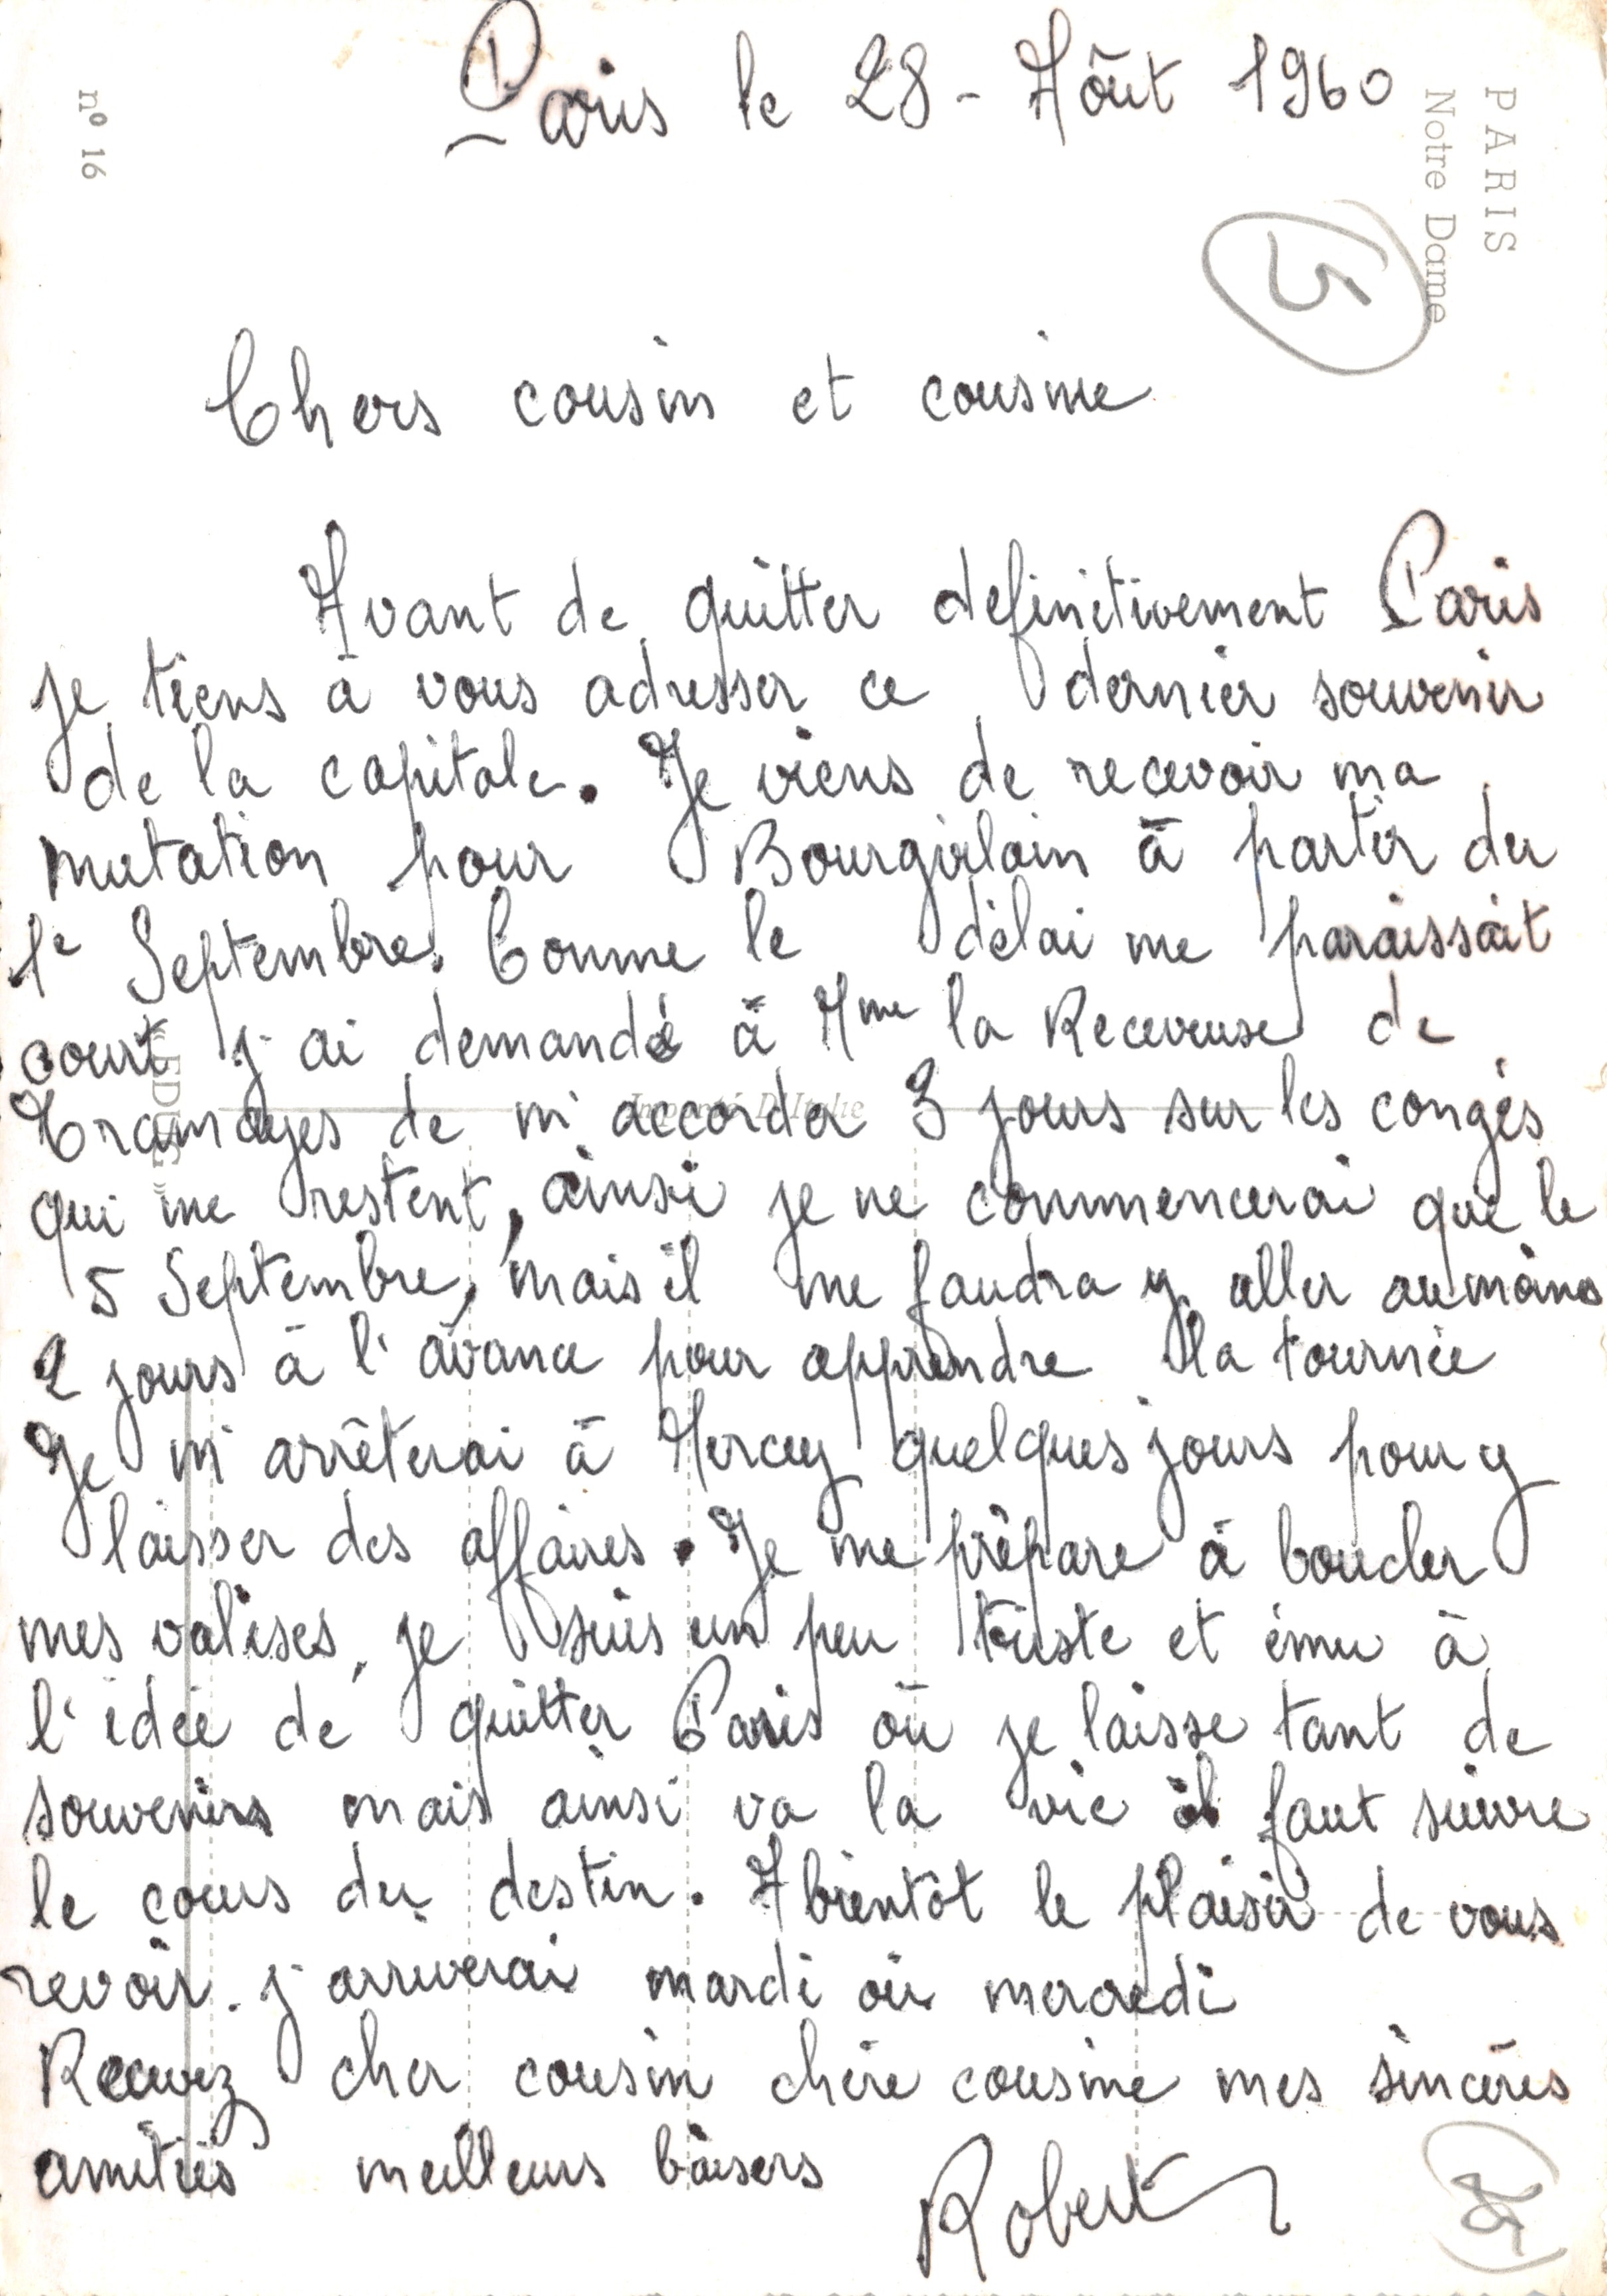 Paris le 28 - Aôut 1960
PARIS
Notre Dame
nº 16
5
Chers cousin et cousine
Avant de quitter definitivement Paris
je tiens à vous adresser ce dernier souvenir
de la capitale. Je viens de recevoir ma
mutation pour Bourgvilain à partir du
1e Septembre. Comme le délai me paraissait
court j'ai demandé à Mme la Receveuse de
Tramayes de m'accorder 3 jours sur les congés
qui me restent, ainsi je ne commencerai que le
5 Septembre, mais il me faudra y aller au moins
2 jours à l'avance pour apprendre la tournée
Je m'arrêterai à Mercey quelques jours pour y
laisser des affaires. Je me prépare à boucler
mes valises, je suis un peu triste et ému à
l'idée de quitter Paris où je laisse tant de
souvenirs mais ainsi va la vie il faut suivre
le cours du destin. A bientôt le plaisir de vous
revoir. j'arriverai mardi ou mercredi
Recevez cher cousin chère cousine mes sincères
amitiés meilleurs baisers
Robert
Importé D'Italie